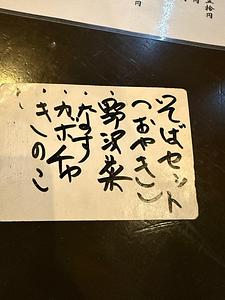 ・そばセット
(おやき)
・野沢菜
・なす
・カボチャ
・きのこ
五拾円
円